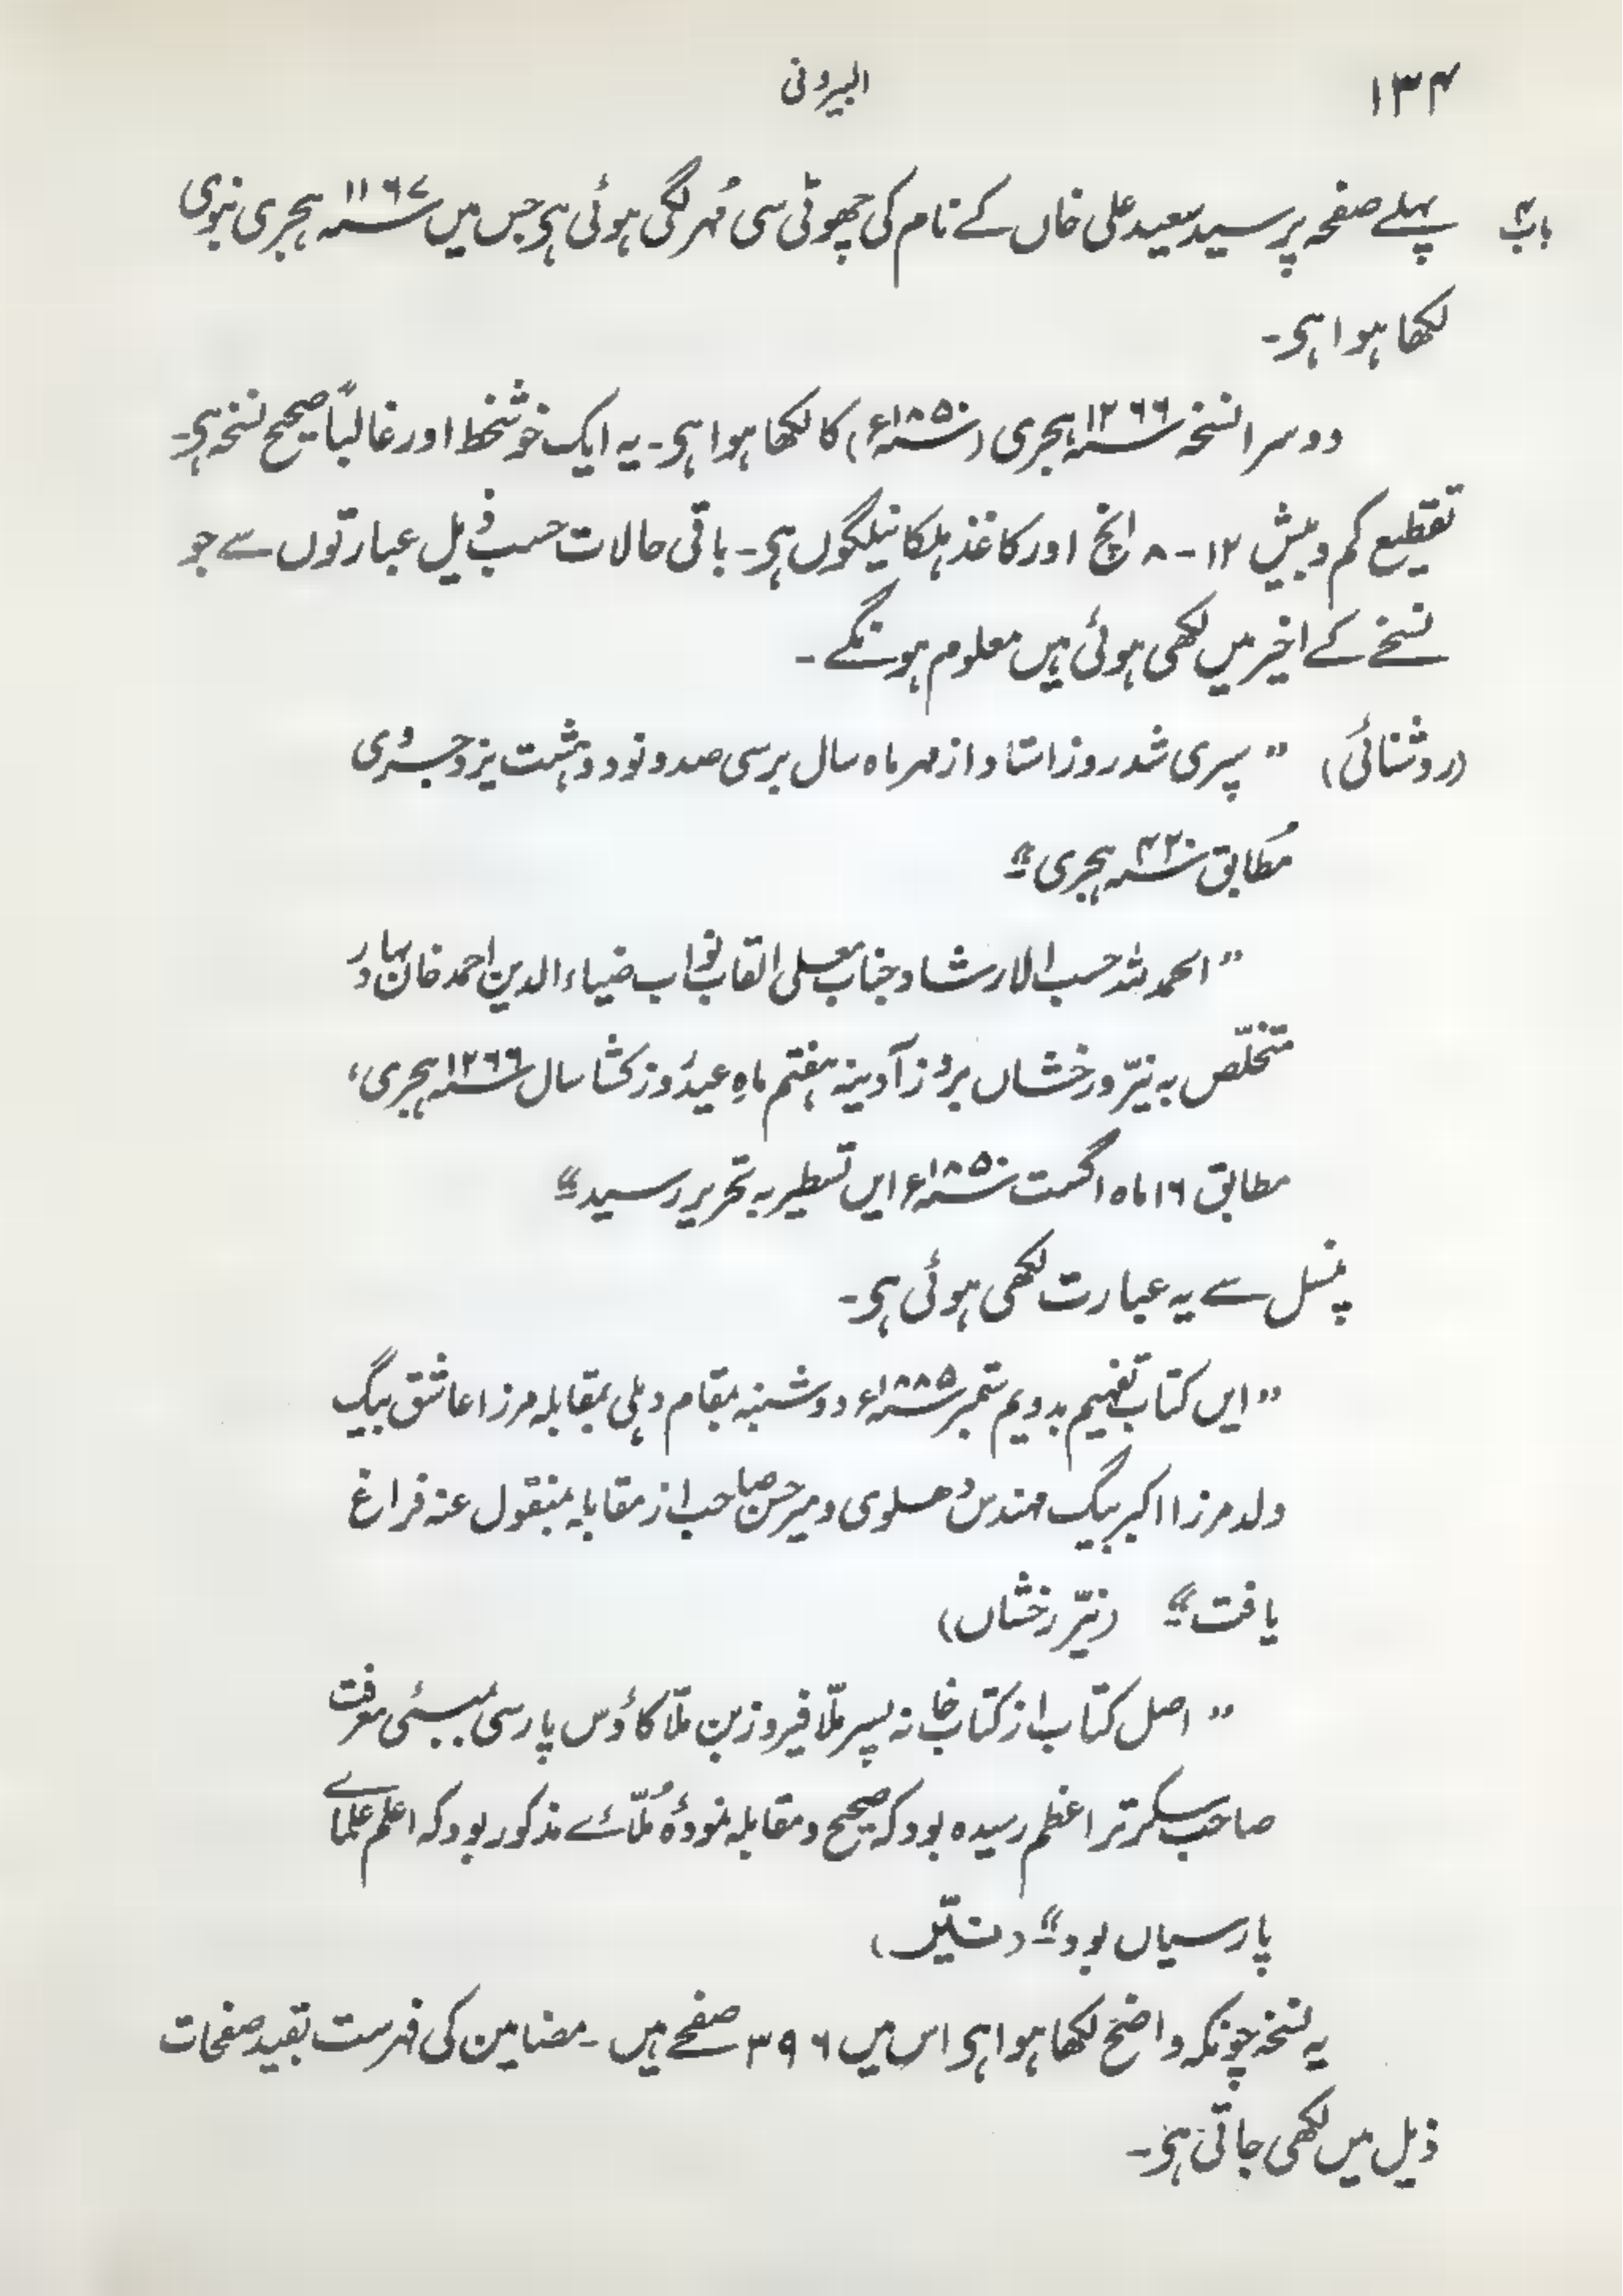 ۱۳۴
البیرونی
باب۴
پہلے صفحہ پر سید سعید علی خاں کے نام کی چھوٹی سی مُہر لگی ہوئی ہی جس میں ۱۱۶۷؁ ہجری نبوی
لکھا ہوا ہی۔
دوسرا نسخہ ۱۲۶۶؁ ہجری (۱۸۵۰؁ء) کا لکھا ہوا ہی۔ یہ ایک خوشخط اور غالباً صحیح نسخہ ہی۔
تقطیع کم و بیش ۱۲-۸ انچ اور کاغذ ہلکا نیلگوں ہی۔ باقی حالات حسب ذیل عبارتوں سے جو
نسخے کے اخیر میں لکھی ہوئی ہیں معلوم ہونگے۔
(روشنائی) "سپری شد روز استاد از مہر ماہ سال برسی صد و نود و ہشت یزدجردی
مُطابق ۴۲۰؁ ہجری"
"الحمدللہ حسب الارشاد جناب معلی القاب نواب ضیاء الدین احمد خان بہادر
متخلّص بہ نیّر و رخشاں بروز آدینہ ہفتم ماہِ عید روزہ کشا سال ۱۲۶۶؁ ہجری،
مطابق ۱۶ ماہ اگست ۱۸۵۰؁ء ایں تسطیر بہ تحریر رسید"
پنسل سے یہ عبارت لکھی ہوئی ہی۔
"ایں کتاب تفہیم بدویم ستمبر ۱۸۸۵؁ء دوشنبہ بمقام دہلی بمقابلہ مرزا عاشق بیگ
ولد مرزا اکبر بیگ مہندس دھلوی و میر حسن صاحب از مقابلہ منقول عنہ فراغ
یافت" (نیّر رخشاں)
"اصل کتاب از کتاب خانہ پسر ملّا فیروز بن ملّا کاؤس پارسی بمبئی معرفت
صاحب سکرتر اعظم رسیدہ بود کہ صحیح و مقابلہ نمودۂ مُلّائے مذکور بود کہ اعلم علمائے
پارسیاں بود" (نیّر)
یہ نسخہ چونکہ واضح لکھا ہوا ہی اس میں ۳۹۶ صفحے ہیں۔ مضامین کی فہرست بقید صفحات
ذیل میں لکھی جاتی ہی۔